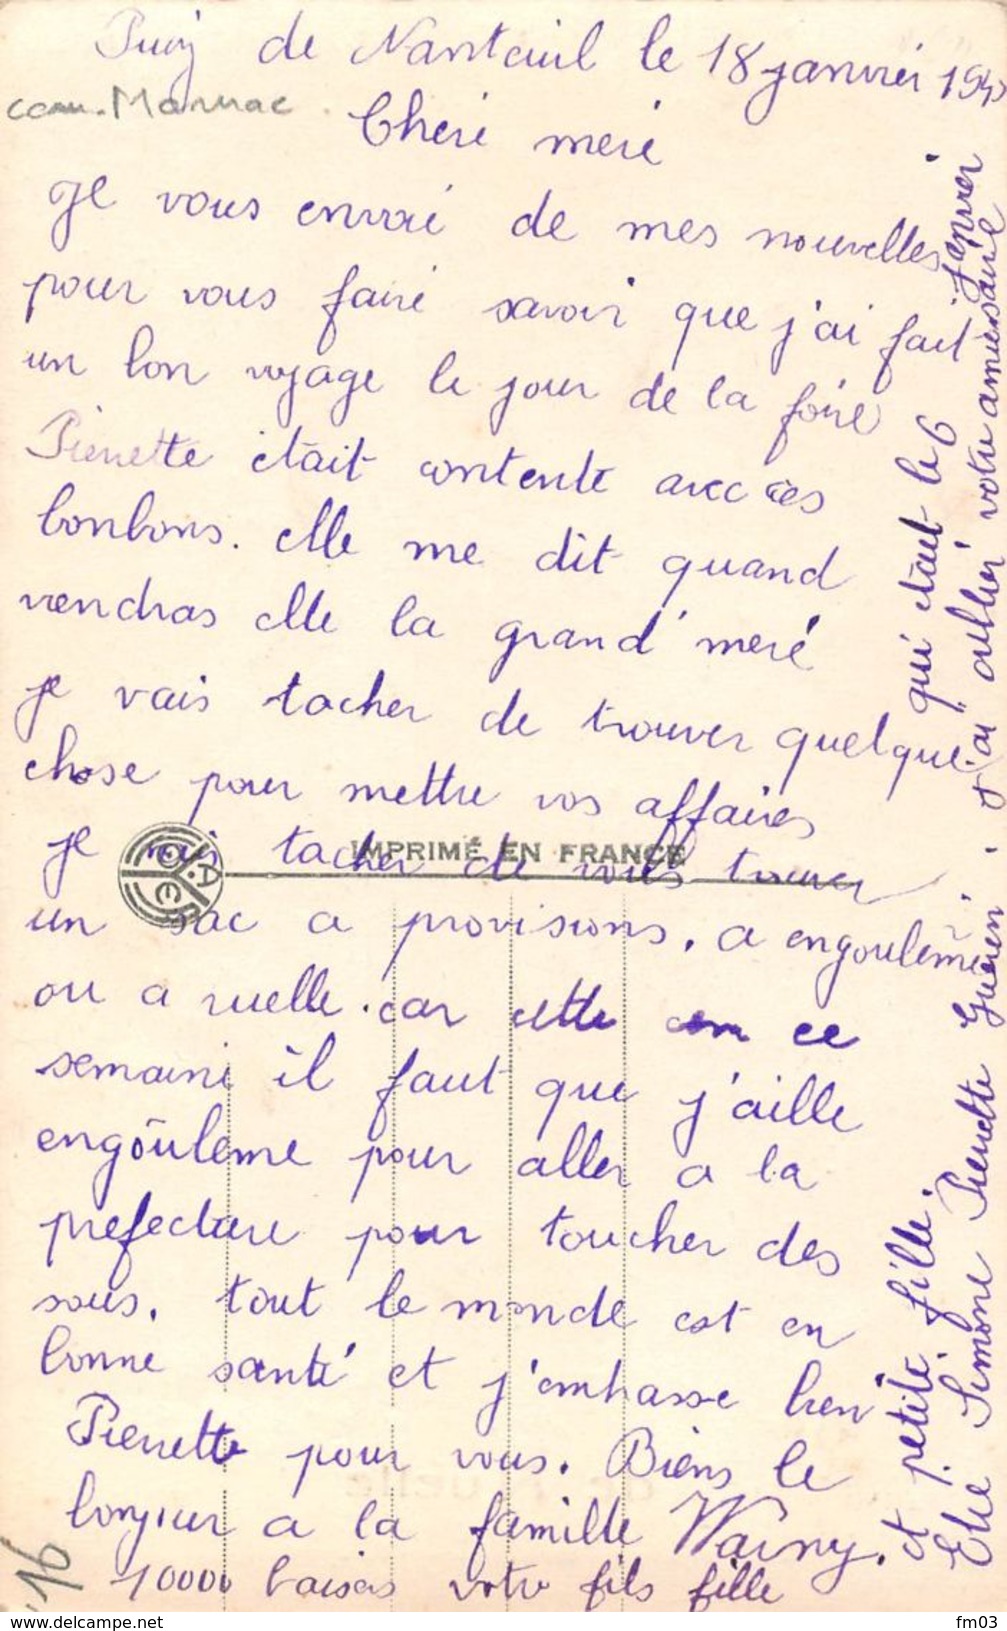 Puy de Nanteuil le 18 janvier 194
com. Marnac
Cheré meré
Je vous envoié de mes nouvelles
pour vous fairé savoir que j'ai fait
un bon voyage le jour de la foire
Pierrette était contente avec ces
bonbons. elle me dit quand
viendras elle la grand'meré
je vais tacher de trouver quelque
chose pour mettre vos affaires
je vais tacher de vous trouver
IMPRIMÉ EN FRANCE
un sac a provisions. a engoulême
ou a ruelle. car cette ce
semaine il faut que j'aille
engouleme pour aller a la
prefecture pour toucher des
sous. tout le monde est en
bonne santé et j'embrasse bien
Pierrette pour vous. Biens le
bonjour a la famille Warny.
10000 baisers votre fils fille
et petite fille.
Elie Simone Pierrette Guerin.
J'ai oublier votre aniersaire
qui était le 6 janvier
16
fm03